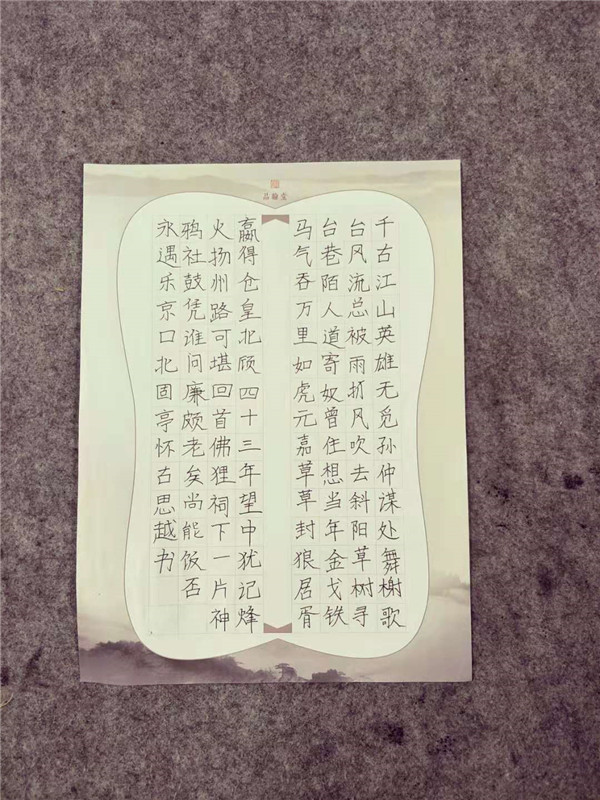 品翰堂
千古江山英雄无觅孙仲谋处舞榭歌
台风流总被雨打风吹去斜阳草树寻
台巷陌人道寄奴曾住想当年金戈铁
马气吞万里如虎元嘉草草封狼居胥
赢得仓皇北顾四十三年望中犹记烽
火扬州路可堪回首佛狸祠下一片神
鸦社鼓凭谁问廉颇老矣尚能饭否
永遇乐京口北固亭怀古思越书